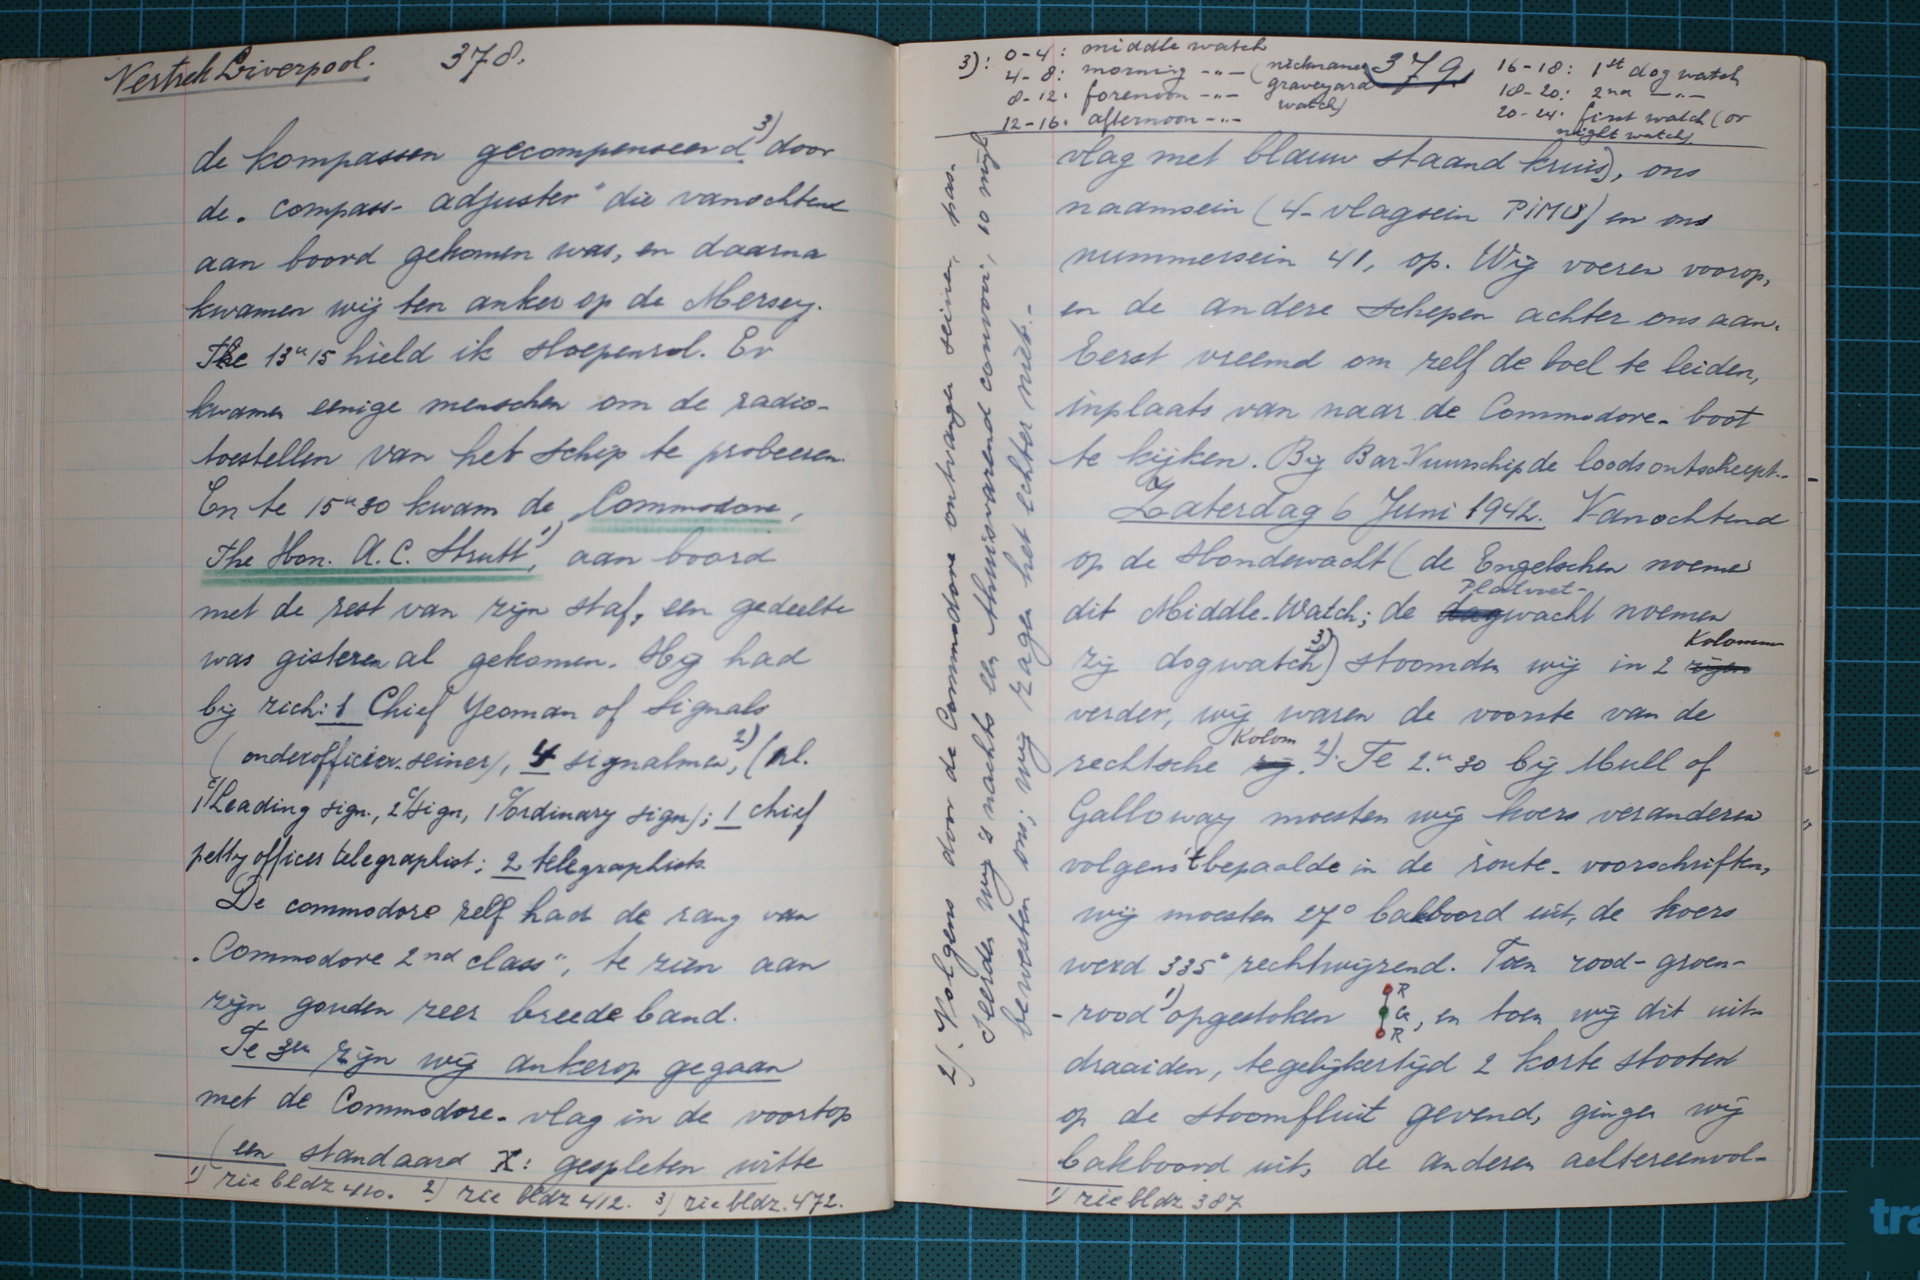 Vertrek Liverpool. 378.
de kompassen gecompenseerd.3) door
de „compass-adjuster" die vanochtend
aan boord gekomen was, en daarna
kwamen wij ten anker op de Mersey.
Te 13u15 hield ik sloepenrol. Er
kwamen eenige menschen om de radio-
toestellen van het schip te probeeren.
En te 15u30 kwam de Commodore,
The Hon. A.C. Strutt1), aan boord
met de rest van zijn staf, een gedeelte
was gisteren al gekomen. Hij had
bij zich: 1 Chief Yeoman of Signals
(onderofficier-seiner), 4 signalmen2), (nl.
1 Leading sign., 2 sign, 1 ordinary sign); 1 chief
petty officer telegraphist; 2 telegraphists.
De commodore zelf had de rang van
„Commodore 2nd class", te zien aan
zijn gouden zeer breede band.
Te 3u zijn wij ankerop gegaan
met de Commodore-vlag in de voortop
(een standaard X: gespleten witte
1) zie bldz 410. 2) zie bldz 412. 3) zie bldz. 472.
3): 0-4: middle watch
4-8: morning -"- (nickname
graveyard
watch)
8-12: forenoon -"-
12-16: afternoon -"-
379.
16-18: 1st dog watch
18-20: 2nd -"-
20-24: first watch (or
night watch)
vlag met blauw staand kruis), ons
naamsein (4-vlagsein ) en ons
nummersein 41, op. Wij voeren voorop,
en de andere schepen achter ons aan.
Eerst vreemd om zelf de boel te leiden,
inplaats van naar de Commodore-boot
te kijken. Bij Bar-Vuurschip de loods ontscheept.
Zaterdag 6 Juni 1942. Vanochtend
op de Hondewacht (de Engelschen noemen
Platvoet-
dit Middle-Watch; de dagwacht noemen
Kolommen
zij dogwatch3)) stoomden wij in 2 rijen
verder, wij waren de voorste van de
Kolom
rechtsche rij.2) Te 2u30 bij Mull of
Galloway moesten wij koers veranderen
volgens 't bepaalde in de route-voorschriften,
wij moesten 27° bakboord uit, de koers
werd 335° rechtwijzend. Toen rood-groen-
-rood1) opgestoken R G R, en toen wij dit uit-
draaiden, tegelijkertijd 2 korte stooten
op de stoomfluit gevend, gingen wij
bakboord uit, de anderen achtereenvol-
1) zie bldz 387
2). Volgens door de Commodore ontvangen seinen, pas-
seerden wij 's nachts een thuisvarend convooi, 10 mijl
bewesten ons; wij zagen het echter niet.-